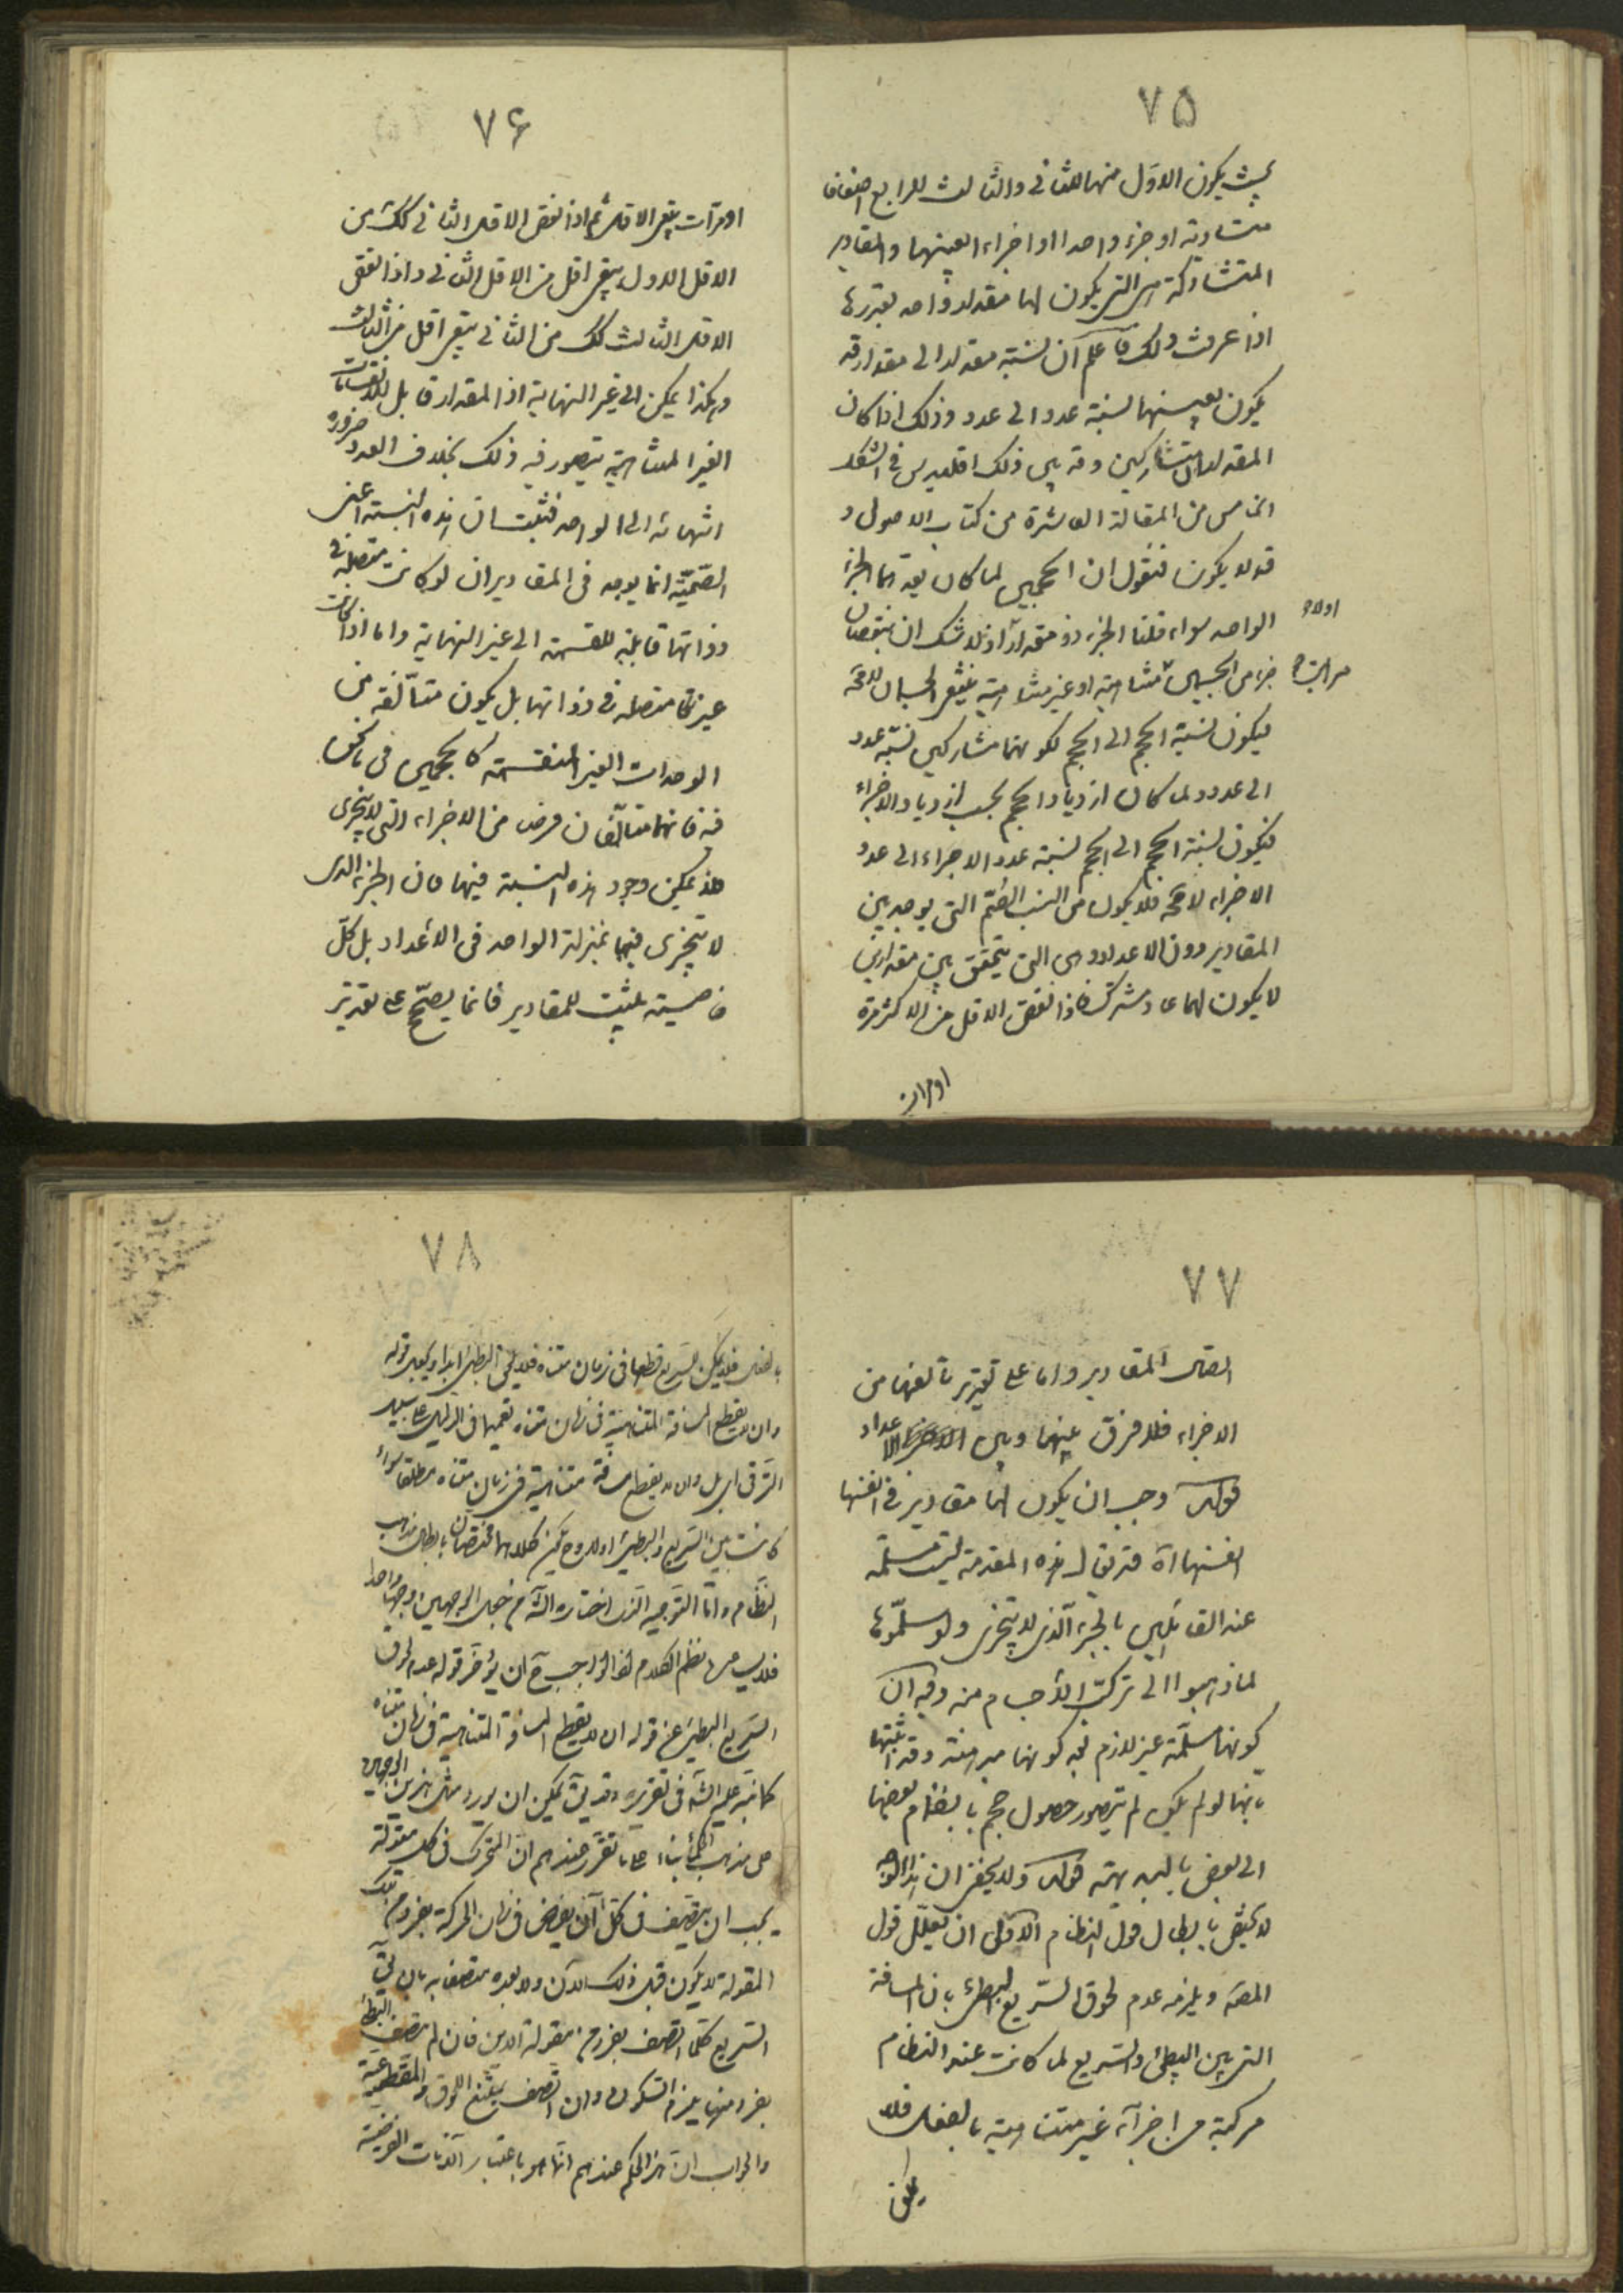 ۷۵
بحيث يكون الاول منهما للثانى والثالث للرابع اضعافا
متساوية او جزء واحدا او اجزاء بعينها والمقادير
المتشاركة هى التى يكون لها مقدار واحد يقدرها
اذا عرفت ذلك فاعلم ان نسبة مقدار الى مقدار قد
يكون بعينها نسبة عدد الى عدد وذلك اذا كان
المقداران متشاركين وقد بين ذلك اقليدس فى الشكل
الخامس من المقالة العاشرة من كتاب الاصول و
قد لا يكون فنقول ان الحجمين لما كان يعدهما الجزء
الواحد سواء قلنا الجزء ذو مقدار اولا
اذ لا شك ان بنقصان
جزء من الجسمين مرات متناهية او غير متناهية ينتفى الجسمان لا محة
فيكون نسبة الحجم الى الحجم لكونهما متشاركين نسبة عدد
الى عدد ولما كان ازدياد الحجم بحسب ازدياد الاجزاء
فيكون نسبة الحجم الى الحجم نسبة عدد الاجزاء الى عدد
الاجزاء لا محة فلا يكون من النسب الصم التى يوجد بين
المقادير دون الاعداد وهى التى يتحقق بين مقدارين
لا يكون لهما عاد مشترك فاذا نقص الاقل من الاكثر مرة
او مرات
۷۶
او مرات يبقى الاقل ثم اذا نقص الاقل الثانى كك من
الاقل الاول يبقى اقل من الاقل الثانى واذا نقص
الاقل الثالث كك من الثانى يبقى اقل من الثالث
وهكذا يمكن الى غير النهاية اذ المقدار قابل للانقسامات
الغير المتناهية يتصور فيه ذلك بخلاف العدد ضرورة
انتهائه الى الواحد فثبت ان هذه النسبة اعنى
الصمية انما يوجد فى المقادير ان لو كانت متصلة فى
ذواتها قابلة للقسمة الى غير النهاية واما اذا كانت
غير متصلة فى ذواتها بل يكون متألفة من
الوحدات الغير المنقسمة كالحجمين فى ما نحن
فيه فانهما متألفان فرضا من الاجزاء التى لا يتجزى
فلا يمكن وجود هذه النسبة فيها فان الجزء الذى
لا يتجزى فيها بمنزلة الواحد فى الاعداد بل كل
خاصية يثبت للمقادير فانما يصح على تقدير
۷۷
اتصال المقادير واما على تقدير تألفها من
الاجزاء فلا فرق بينهما وبين الاعداد
قوله وجب ان يكون لها مقادير فى انفسها
انفسها آه قد يقال هذه المقدمة ليست مسلمة
عند القائلين بالجزء الذى لا يتجزى ولو سلموها
لما ذهبوا الى تركب الاجسام منه وفيه ان
كونها مسلمة غير لازم بعد كونها مبرهنة وقد اثبتها
بانها لو لم يكن لم يتصور حصول حجم بانضمام بعضها
الى بعض بالبديهة قوله ولا يخفى ان هذا الوجه
لا يختص بابطال قول النظام الاولى ان يعلل قول
المصنف ويلزمه عدم لحوق السريع البطئ بان المسافة
التى بين البطئ والسريع لما كانت عند النظام
مركبة من اجزاء غير متناهية بالفعل فلا
يمكن
۷۸
بالفعل فلا يمكن للسريع قطعها فى زمان متناه فلا يلحق البطئ ابدا ويكون قوله
وان لا يقطع المسافة المتناهية فى زمان متناه تعميما فى الدليل على سبيل
الترقى اى بل وان لا يقطع مسافة متناهية فى زمان متناه مطلقا سواء
كانت بين السريع والبطئ اولا وح يكون كلاهما مختصان بابطال مذهب
النظام واما التوجيه الذى اختاره الش من جعل الوجهين وجها واحدا
فلا يساعده نظم الكلام اذ الواجب ح ان يؤخر قوله عدم لحوق
السريع البطئ عن قوله ان لا يقطع المسافة المتناهية فى زمان متناه
كما نبه عليه الش فى تقريره وقد يق يمكن ان يورد مثل هذين الوجهين
على مذهب الحكماء بناء على ما تقرر عندهم ان المتحرك فى كل مقولة
يجب ان يتصف فى كل آن يفرض فى زمان الحركة بفرد من تلك
المقولة لا يكون قبل ذلك الان ولا بعده متصفا به بان يق
السريع كلما اتصف بفرد من مقولة الاين فان لم يتصف البطئ
بفرد منها يلزم السكون وان اتصف يمتنع اللحوق
والجواب ان هذا الحكم عندهم انما هو باعتبار الآنات الفرضية